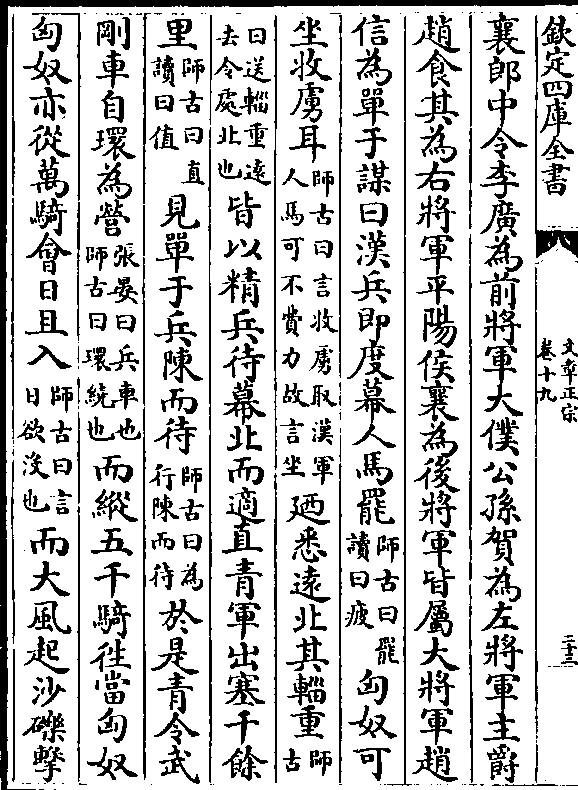 欽定四庫全書
文章正宗
卷十九
二十三
襄郎中令李廣為前將軍大僕公孫賀為左將軍主爵
趙食其為右將軍平陽侯襄為後將軍皆屬大將軍趙
信為單于謀曰漢兵即度幕人馬罷師古曰罷讀曰疲匈奴可
坐收虜耳師古曰言收虜取漢軍人馬可不費力故言坐廼悉遠北其輜重師古
曰送輜重遠去令處北也皆以精兵待幕北而適直青軍出塞千餘
里師古曰直讀曰值見單于兵陳而待師古曰為行陳而待於是青令武
剛車自環為營張晏曰兵車也師古曰環繞也而縱五千騎徃當匈奴
匈奴亦從萬騎會日且入師古曰言日欲沒也而大風起沙礫擊